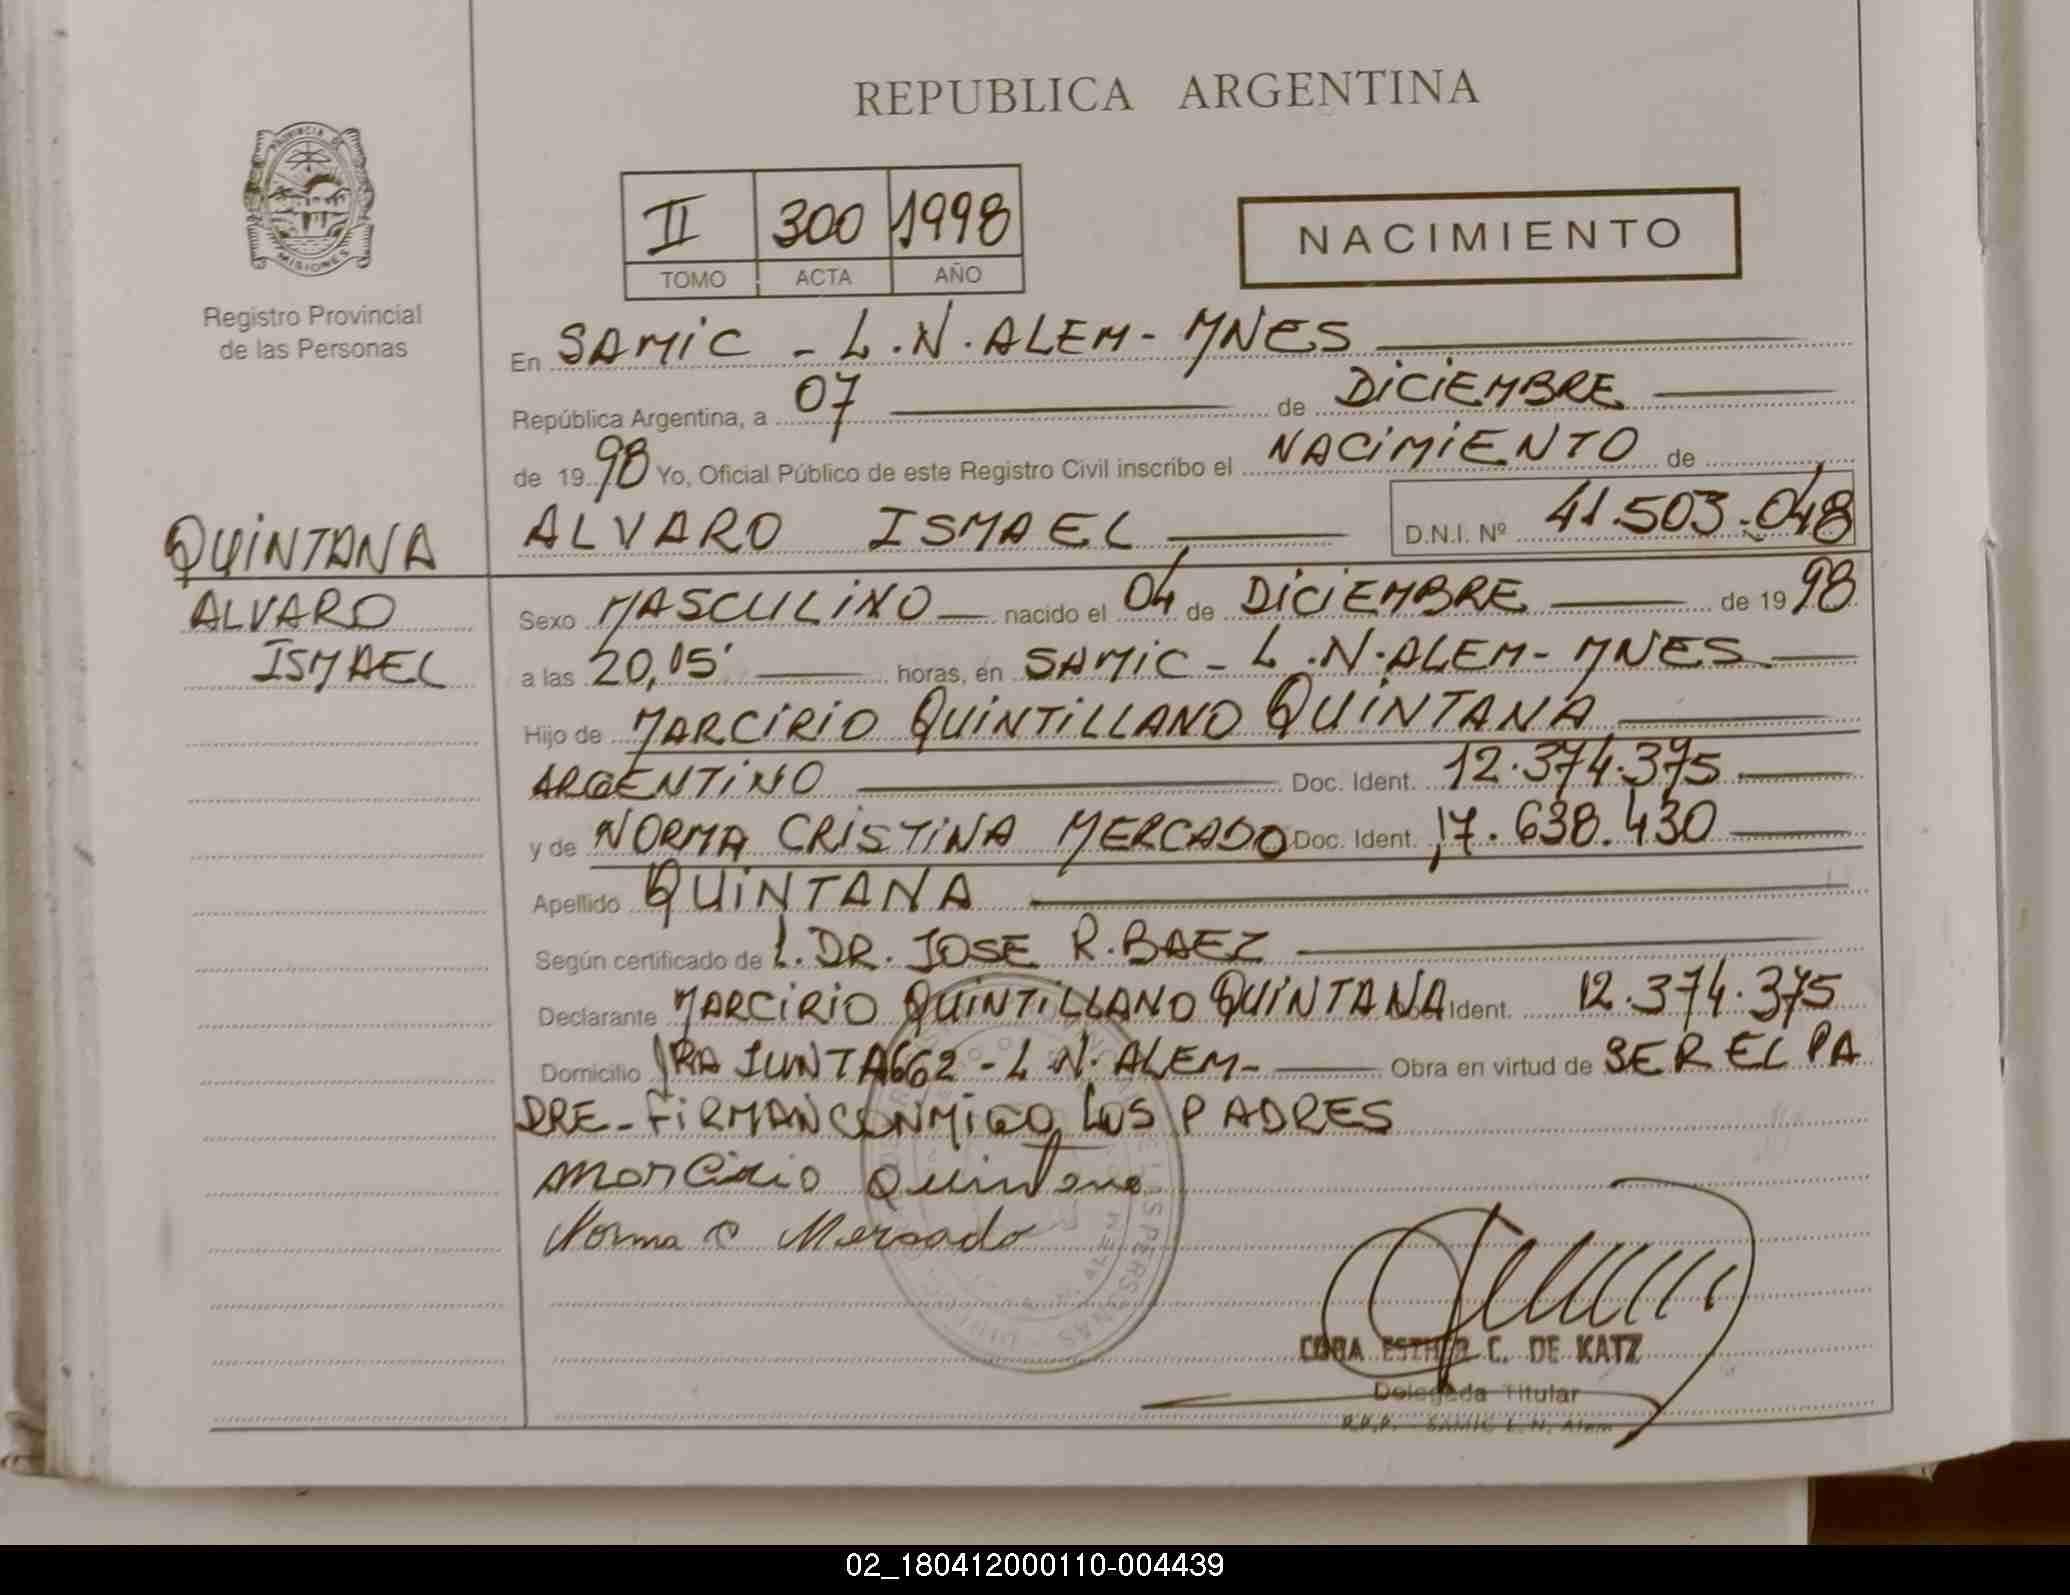 REPUBLICA ARGENTINA
PROVINCIA DE MISIONES
Registro Provincial
de las Personas
II 300 1998
TOMO ACTA AÑO
NACIMIENTO
En SAMIC - L.N. ALEM - MNES
República Argentina, a 07 de DICIEMBRE
de 19 98 Yo, Oficial Público de este Registro Civil inscribo el NACIMIENTO de
ALVARO ISMAEL D.N.I. Nº 41.503.048
QUINTANA
ALVARO
ISMAEL
Sexo MASCULINO nacido el 04 de DICIEMBRE de 19 98
a las 20,05' horas, en SAMIC - L.N. ALEM - MNES
Hijo de MARCIRIO QUINTILLANO QUINTANA
ARGENTINO Doc. Ident. 12.374.375
y de NORMA CRISTINA MERCADO Doc. Ident. 17.638.430
Apellido QUINTANA
Según certificado de L. DR. JOSE R. BAEZ
Declarante MARCIRIO QUINTILLANO QUINTANA Ident. 12.374.375
Domicilio 1RA JUNTA 662 - L N. ALEM - Obra en virtud de SER EL PA
DRE - FIRMAN CONMIGO LOS PADRES
Marcirio Quintana
Norma C Mercado
CORA ESTHER C. DE KATZ
Delegada Titular
R.P.P. - SAMIC L. N. Alem
02_180412000110-004439